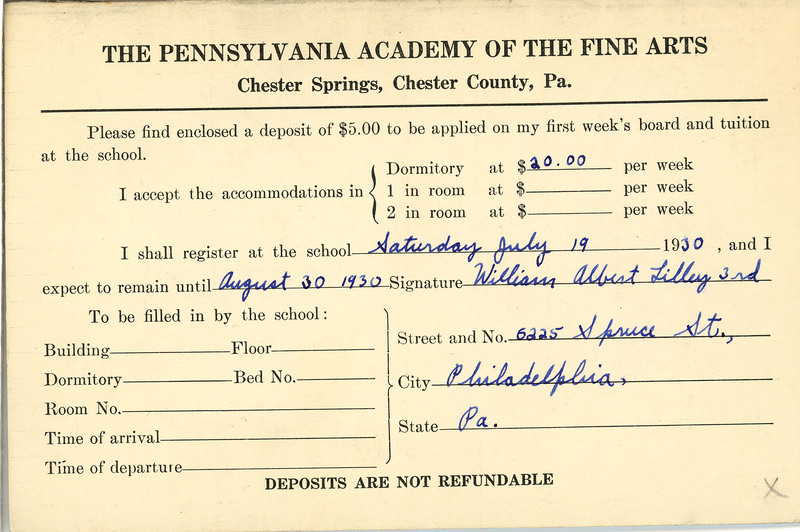 THE PENNSYLVANIA ACADEMY OF THE FINE ARTS
Chester Springs, Chester County, Pa.
Please find enclosed a deposit of $5.00 to be applied on my first week's board and tuition
at the school.
I accept the accommodations in
Dormitory at $20.00 per week
1 in room at $ per week
2 in room at $ per week
I shall register at the school Saturday July 19 1930, and I
expect to remain until August 30 1930 Signature William Albert Lilley 3rd
To be filled in by the school:
Building Floor
Dormitory Bed No.
Room No.
Time of arrival
Time of departure
Street and No. 6225 Spruce St.,
City Philadelphia,
State Pa.
DEPOSITS ARE NOT REFUNDABLE
X